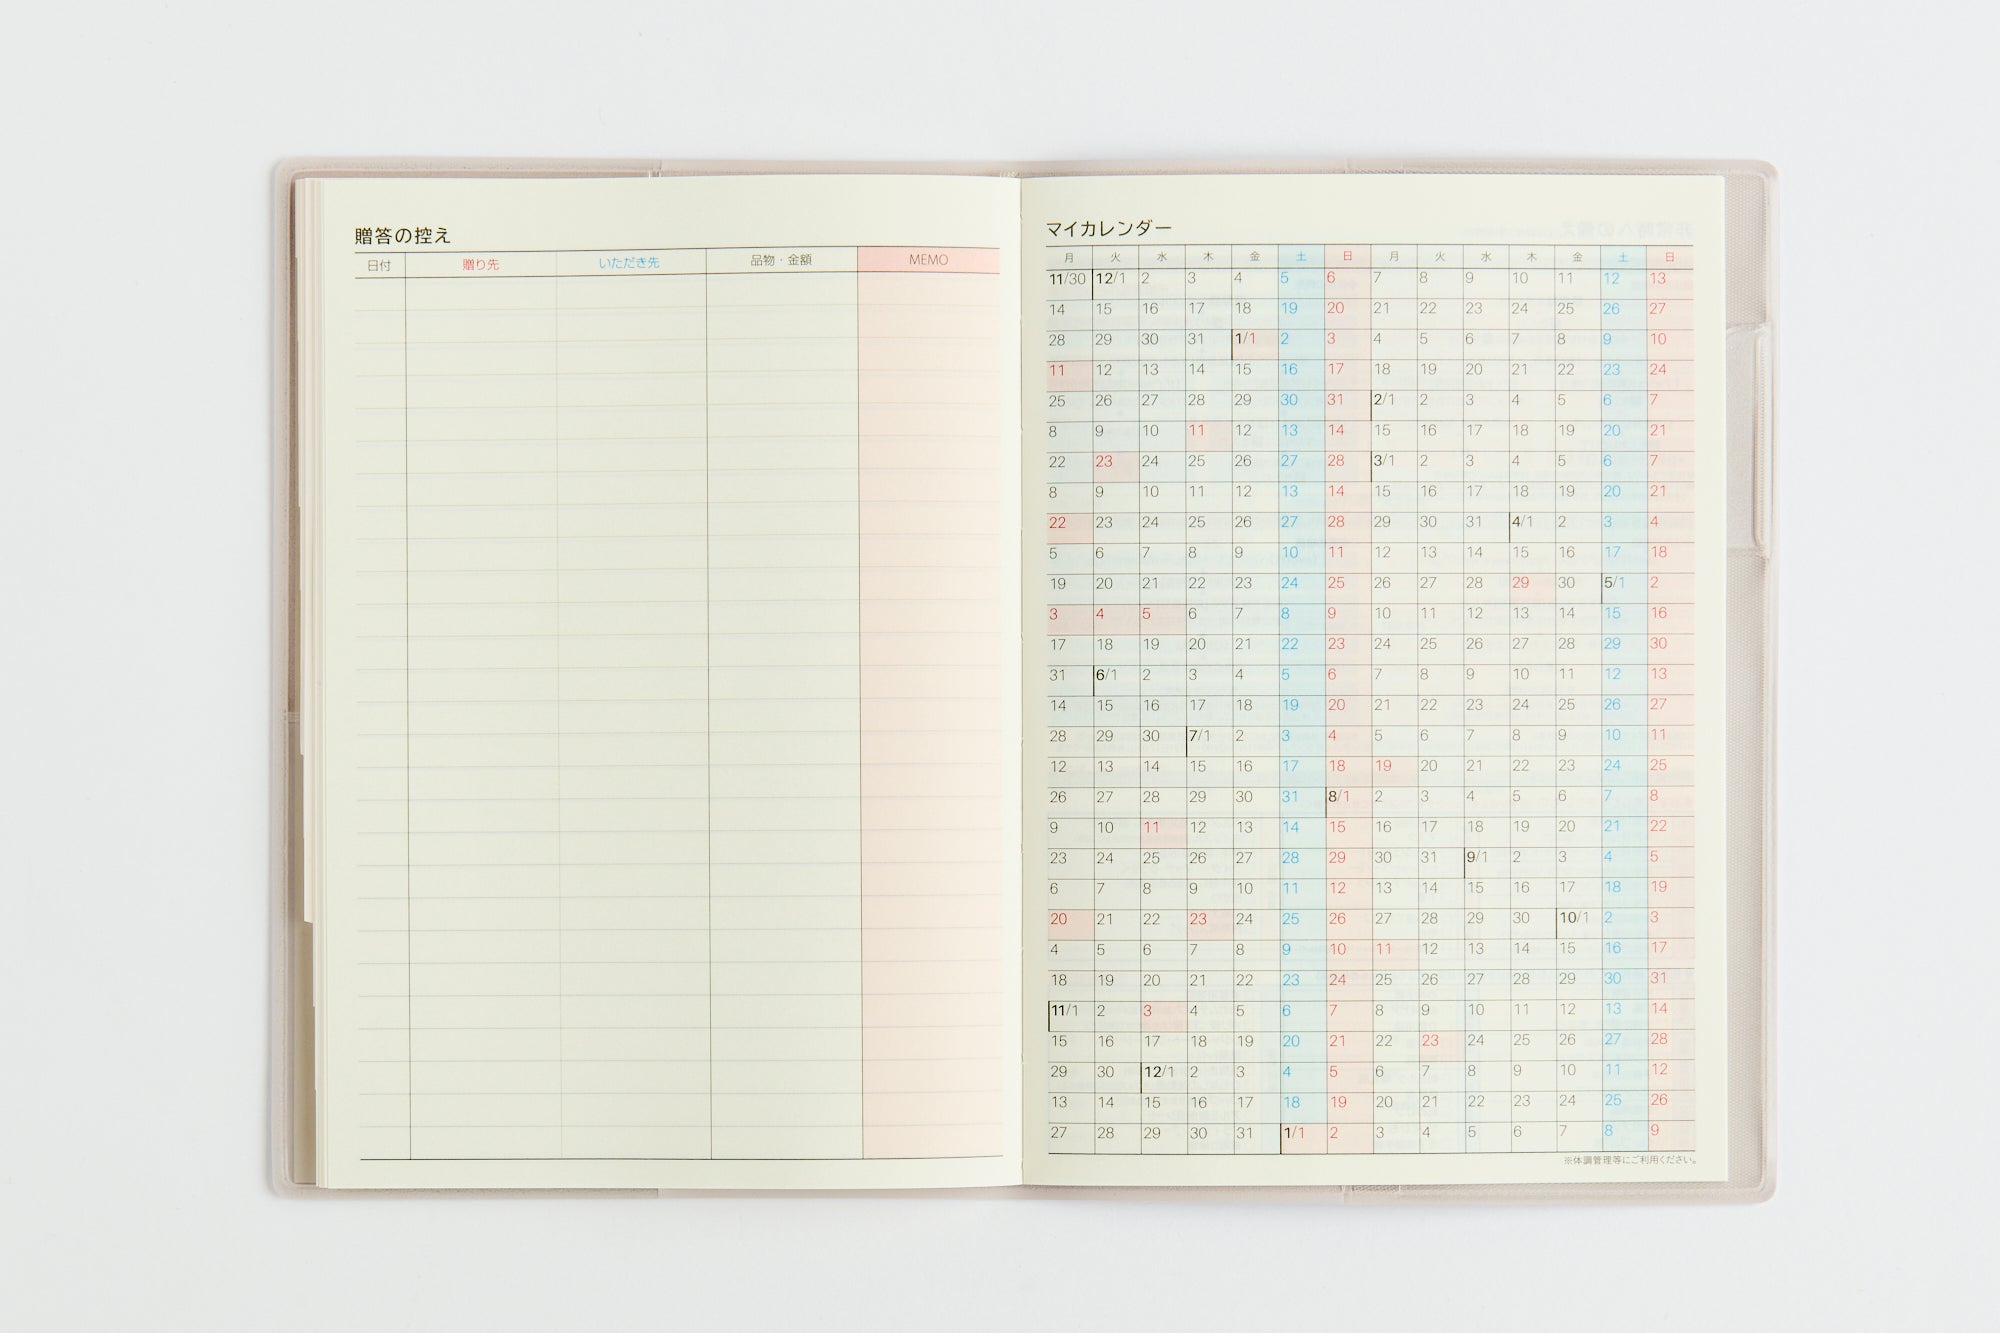 贈答の控え
日付 贈り先 いただき先 品物・金額 MEMO
マイカレンダー
月 火 水 木 金 土 日 月 火 水 木 金 土 日
11/30 12/1 2 3 4 5 6 7 8 9 10 11 12 13
14 15 16 17 18 19 20 21 22 23 24 25 26 27
28 29 30 31 1/1 2 3 4 5 6 7 8 9 10
11 12 13 14 15 16 17 18 19 20 21 22 23 24
25 26 27 28 29 30 31 2/1 2 3 4 5 6 7
8 9 10 11 12 13 14 15 16 17 18 19 20 21
22 23 24 25 26 27 28 3/1 2 3 4 5 6 7
8 9 10 11 12 13 14 15 16 17 18 19 20 21
22 23 24 25 26 27 28 29 30 31 4/1 2 3 4
5 6 7 8 9 10 11 12 13 14 15 16 17 18
19 20 21 22 23 24 25 26 27 28 29 30 5/1 2
3 4 5 6 7 8 9 10 11 12 13 14 15 16
17 18 19 20 21 22 23 24 25 26 27 28 29 30
31 6/1 2 3 4 5 6 7 8 9 10 11 12 13
14 15 16 17 18 19 20 21 22 23 24 25 26 27
28 29 30 7/1 2 3 4 5 6 7 8 9 10 11
12 13 14 15 16 17 18 19 20 21 22 23 24 25
26 27 28 29 30 31 8/1 2 3 4 5 6 7 8
9 10 11 12 13 14 15 16 17 18 19 20 21 22
23 24 25 26 27 28 29 30 31 9/1 2 3 4 5
6 7 8 9 10 11 12 13 14 15 16 17 18 19
20 21 22 23 24 25 26 27 28 29 30 10/1 2 3
4 5 6 7 8 9 10 11 12 13 14 15 16 17
18 19 20 21 22 23 24 25 26 27 28 29 30 31
11/1 2 3 4 5 6 7 8 9 10 11 12 13 14
15 16 17 18 19 20 21 22 23 24 25 26 27 28
29 30 12/1 2 3 4 5 6 7 8 9 10 11 12
13 14 15 16 17 18 19 20 21 22 23 24 25 26
27 28 29 30 31 1/1 2 3 4 5 6 7 8 9
※体調管理等にご利用ください。